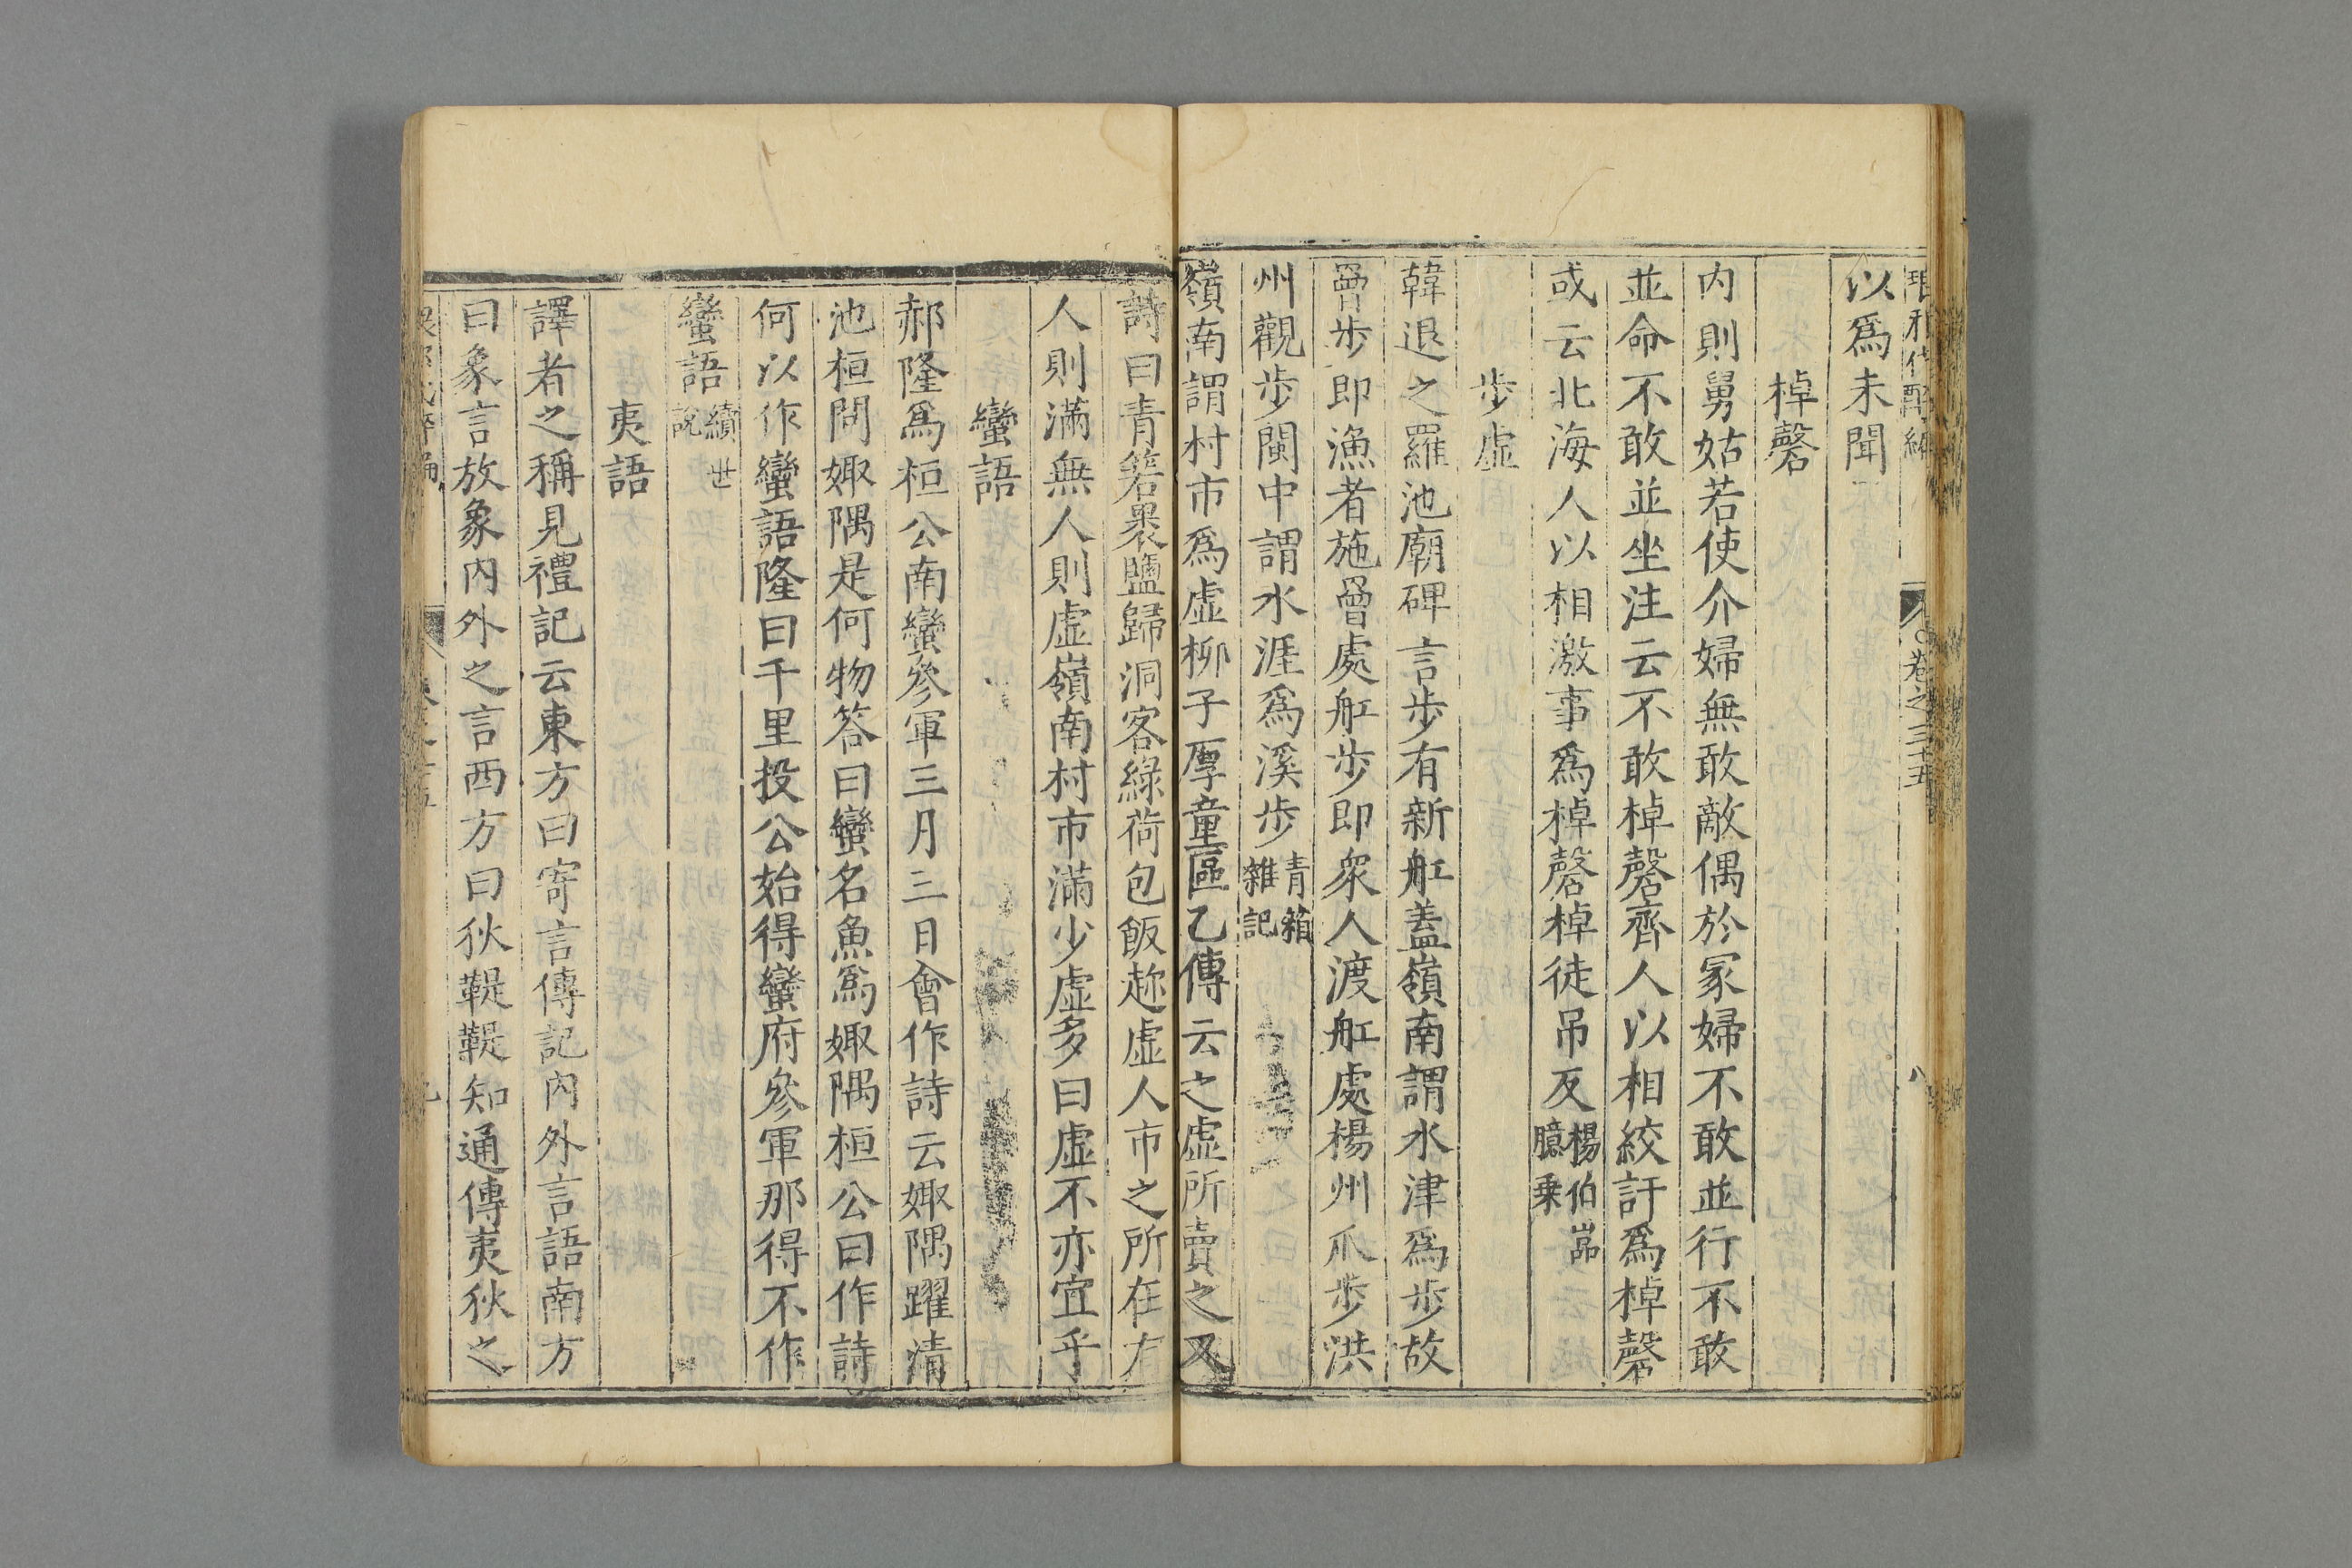 琅邪代醉編 卷之三十五 八
以爲未聞
棹磬
内則舅姑若使介婦無敢敵偶於冢婦不敢並行不敢
並命不敢並坐注云不敢棹磬齊人以相絞訐爲棹磬
或云北海人以相激事爲棹磬棹徒吊反楊伯嵒臆乗
步虛
韓退之羅池廟碑言步有新舡蓋嶺南謂水津爲步故
罾步即漁者施罾處舡步即衆人渡舡處楊州爪步洪
州觀步閩中謂水涯爲溪步青箱雜記
嶺南謂村市爲虛柳子厚童區乙傳云之虛所賣之又
詩曰青箬褁鹽歸洞客綠荷包飯趂虛人市之所在有
人則滿無人則虛嶺南村市滿少虛多曰虛不亦宜乎
蠻語
郝隆爲桓公南蠻參軍三月三日會作詩云娵隅躍清
池桓問娵隅是何物答曰蠻名魚爲娵隅桓公曰作詩
何以作蠻語隆曰千里投公始得蠻府參軍那得不作
蠻語續世說
夷語
譯者之稱見禮記云東方曰寄言傳記內外言語南方
曰象言放象內外之言西方曰狄鞮鞮知通傳夷狄之